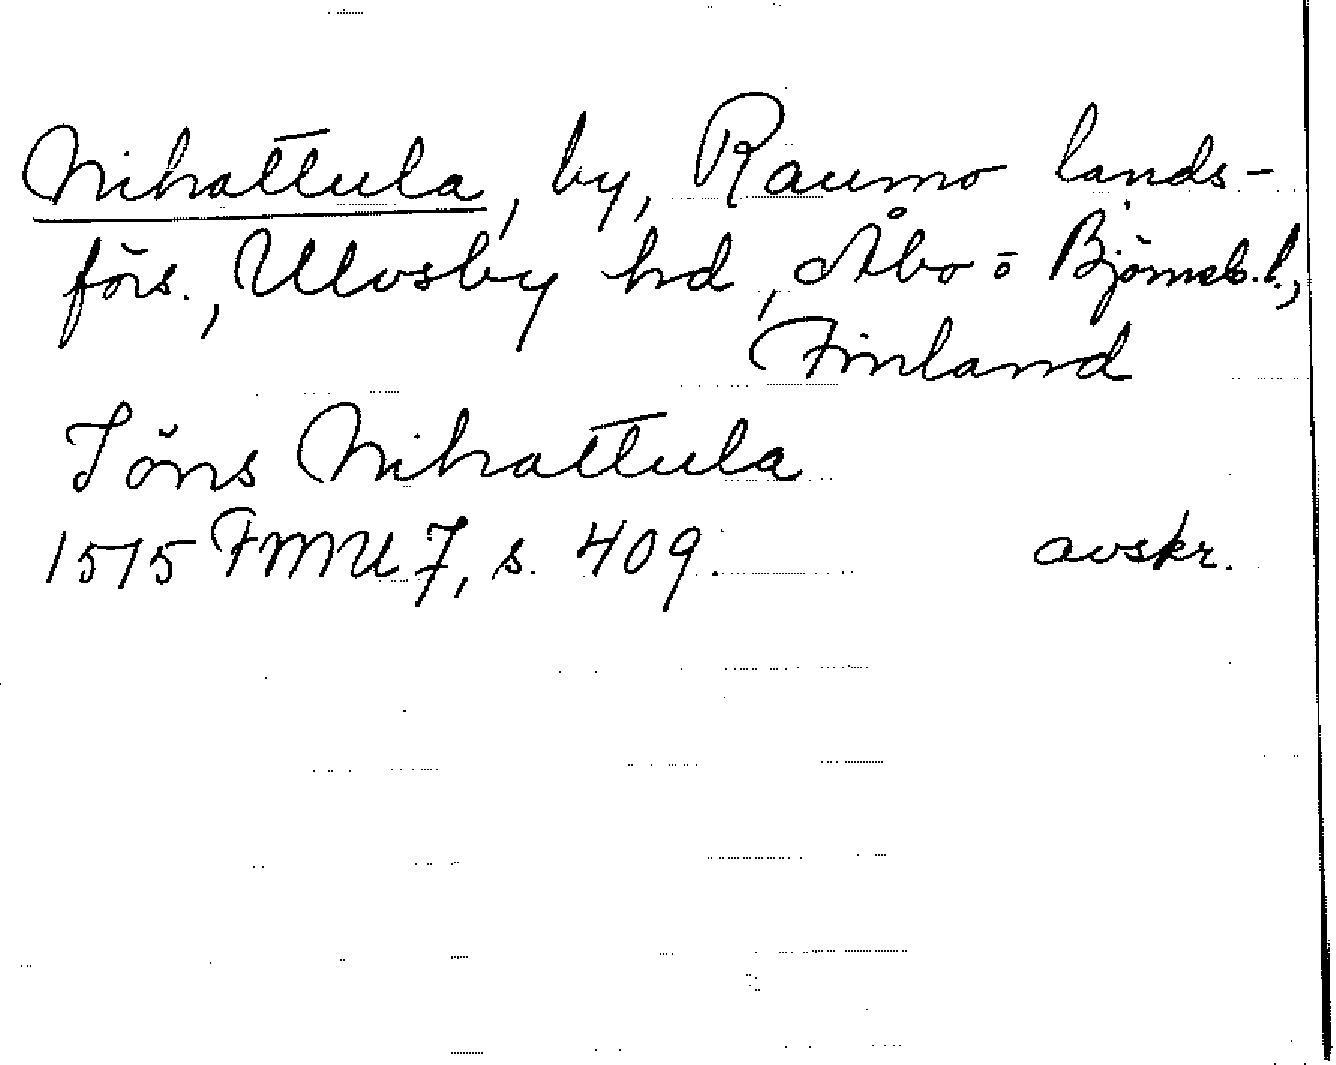 Nihattula, by, Raumo lands-
förs., Ulvsby hd, Åbo o Björneb. l.,
Finland
Jöns Nihattula
1575 FMU 7, s. 409. avskr.